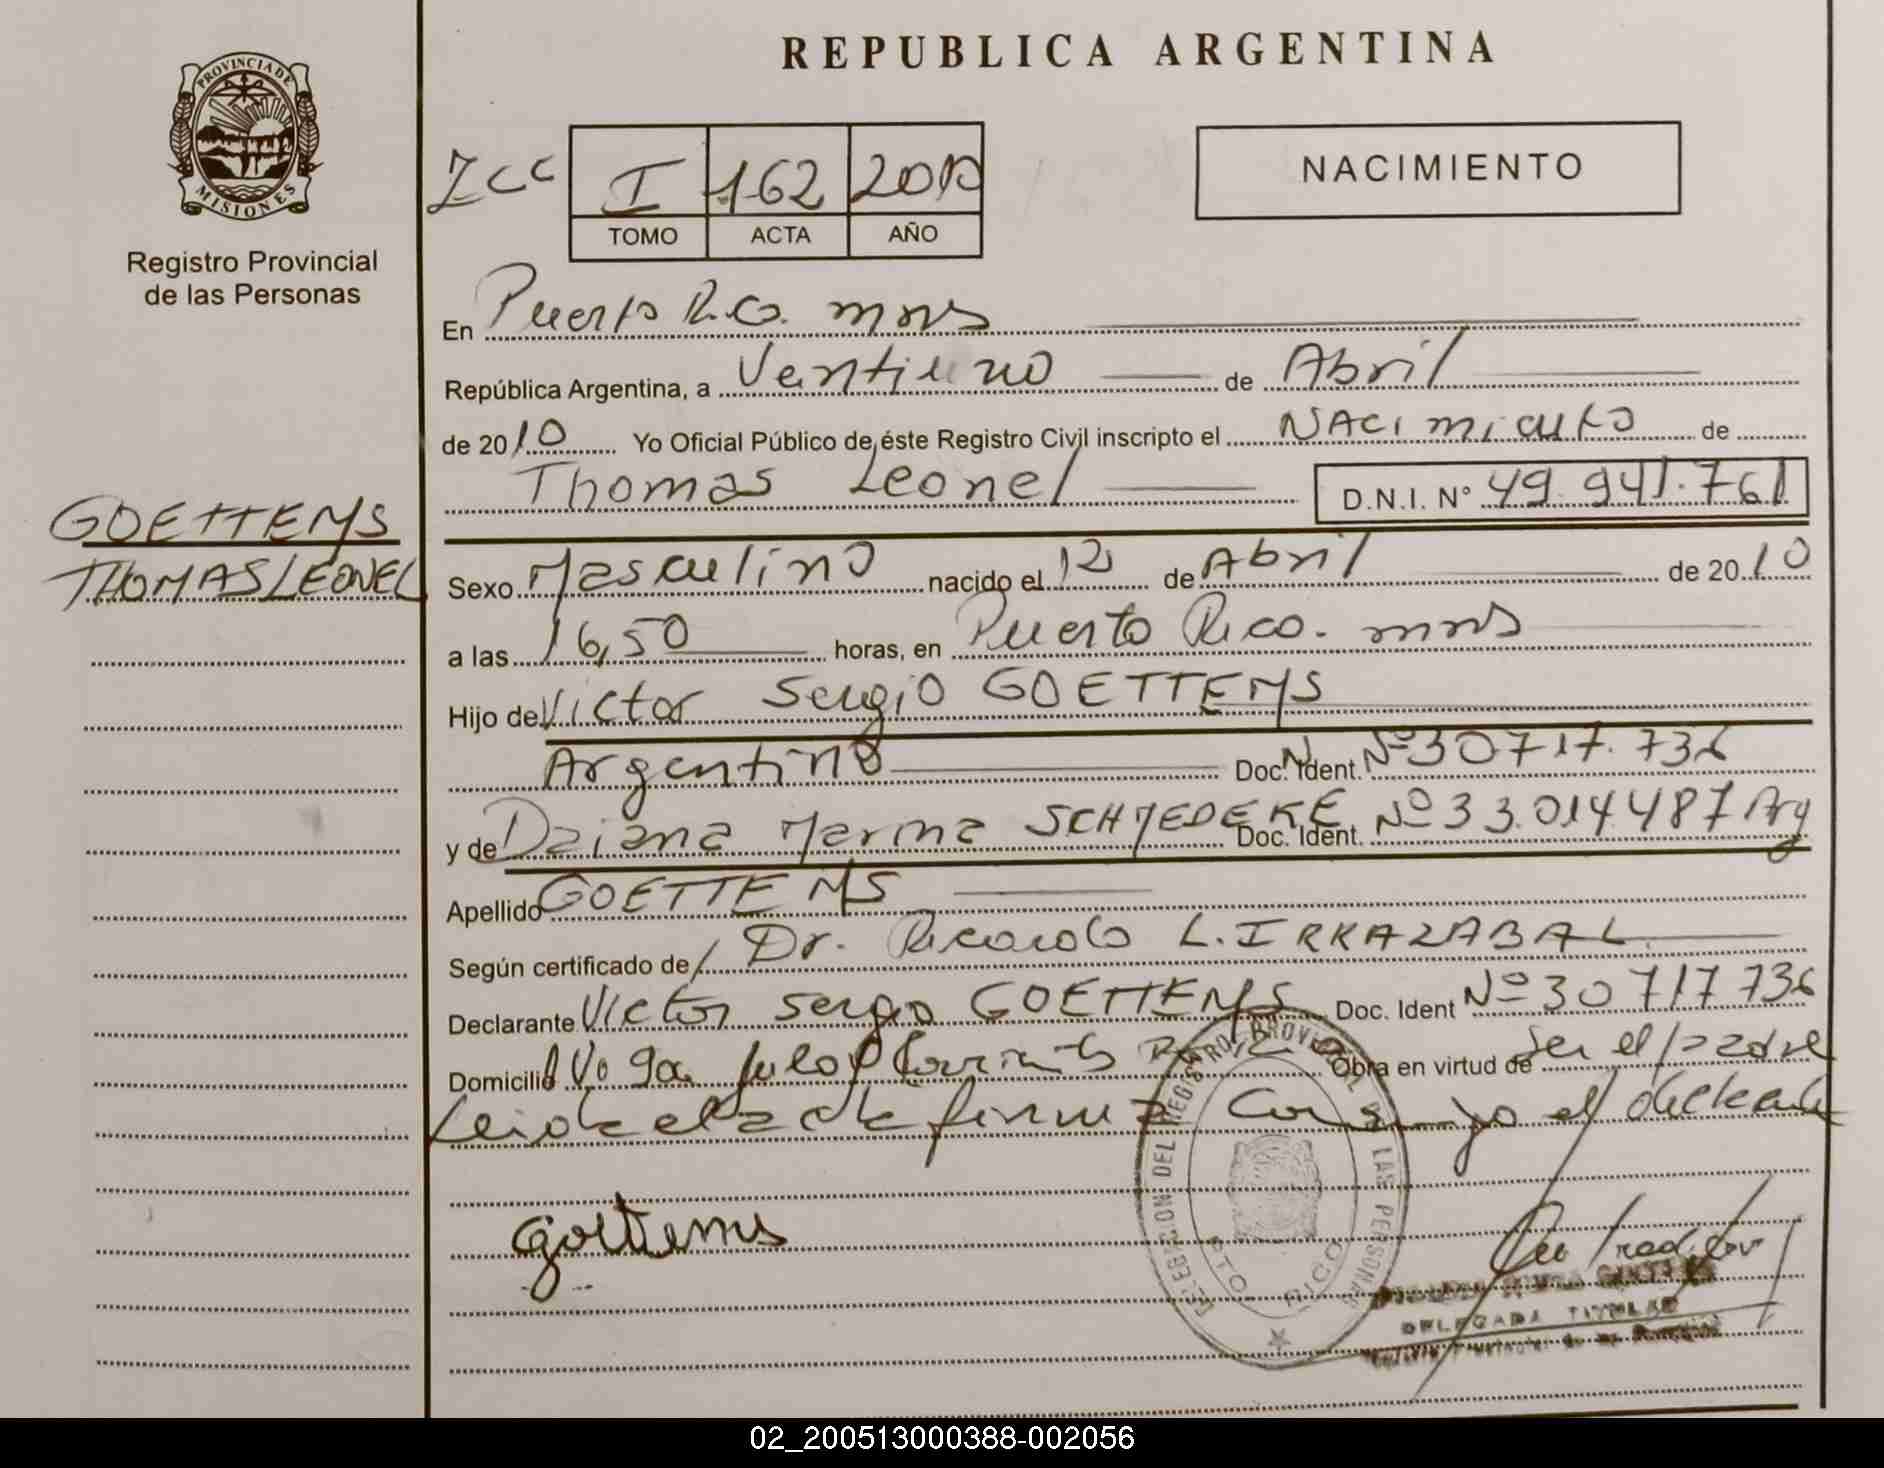 REPUBLICA ARGENTINA
PROVINCIA DE
MISIONES
Registro Provincial
de las Personas
I 162 2010
TOMO ACTA AÑO
NACIMIENTO
En Puerto Rico. mns
República Argentina, a Ventiuno de Abril
de 2010 Yo Oficial Público de éste Registro Civil inscripto el NACimiento de
Thomas Leonel D.N.I. N° 49.941.761
GOETTEMS
THOMAS LEONEL
Sexo Masculino nacido el 12 de Abril de 2010
a las 16,50 horas, en Puerto Rico. mns
Hijo de Victor Sergio GOETTEMS
Argentino Doc. Ident. Nº 30717.736
y de Daiana Marina SCHMEDEKE Doc. Ident. Nº 33.014.487 Arg
Apellido GOETTEMS
Según certificado de/ Dr. Ricardo L. IRRAZABAL
Declarante Victor Sergio GOETTEMS Doc. Ident Nº 30717736
Domicilio Obra en virtud de ser el padre
Leida el acta firma conmigo el declarante
DELEGACION DEL REGISTRO PROVINCIAL DE LAS PERSONAS
PTO. RICO
Goettems
DELEGADA TITULAR
02_200513000388-002056